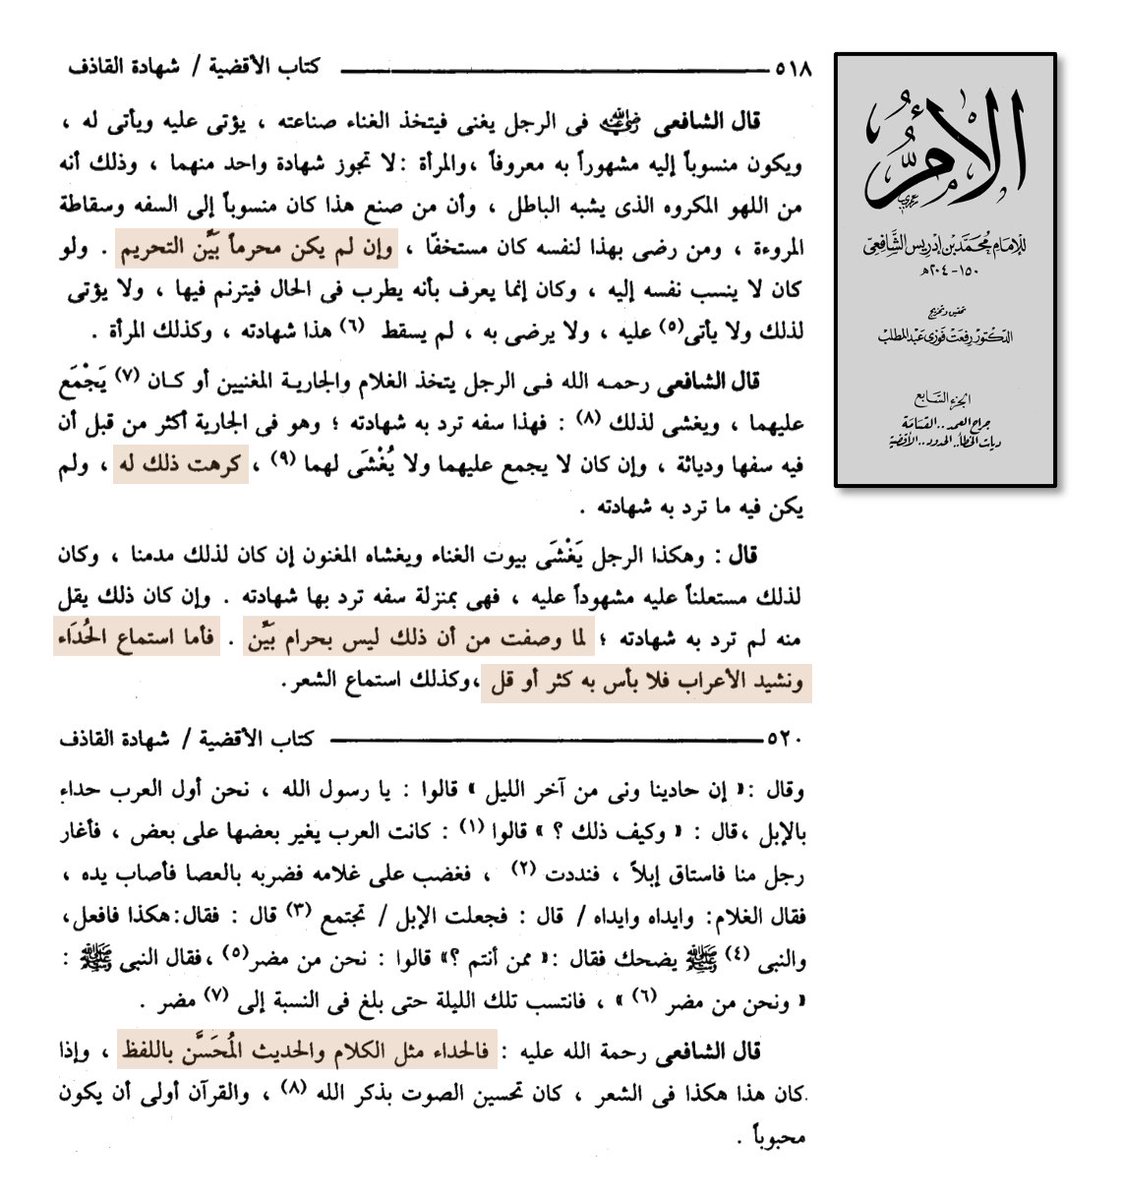 ٥١٨ كتاب الأقضية / شهادة القاذف
قال الشافعى رضي الله عنه فى الرجل يغنى فيتخذ الغناء صناعته ، يؤتى عليه ويأتى له ،
ويكون منسوباً إليه مشهوراً به معروفاً ،والمرأة :لا تجوز شهادة واحد منهما ، وذلك أنه
من اللهو المكروه الذى يشبه الباطل ، وأن من صنع هذا كان منسوباً إلى السفه وسقاطة
المروءة ، ومن رضى بهذا لنفسه كان مستخفًا ، وإن لم يكن محرماً بَيِّن التحريم . ولو
كان لا ينسب نفسه إليه ، وكان إنما يعرف بأنه يطرب فى الحال فيترنم فيها ، ولا يؤتى
لذلك ولا يأتى(٥) عليه ، ولا يرضى به ، لم يسقط (٦) هذا شهادته ، وكذلك المرأة .
قال الشافعى رحمه الله فى الرجل يتخذ الغلام والجارية المغنيين أو كان (٧) يَجْمَع
عليهما ، ويغشى لذلك (٨) : فهذا سفه ترد به شهادته ؛ وهو فى الجارية أكثر من قبل أن
فيه سفها ودياثة ، وإن كان لا يجمع عليهما ولا يُغْشَى لهما (٩) ، كرهت ذلك له ، ولم
يكن فيه ما ترد به شهادته .
قال : وهكذا الرجل يَغْشَى بيوت الغناء ويغشاه المغنون إن كان لذلك مدمنا ، وكان
لذلك مستعلناً عليه مشهوداً عليه ، فهى بمنزلة سفه ترد بها شهادته . وإن كان ذلك يقل
منه لم ترد به شهادته ؛ لما وصفت من أن ذلك ليس بحرام بَيِّن . فأما استماع الحُدَاء
ونشيد الأعراب فلا بأس به كثر أو قل ،وكذلك استماع الشعر.
٥٢٠ كتاب الأقضية / شهادة القاذف
وقال :« إن حادينا ونى من آخر الليل » قالوا : يا رسول الله ، نحن أول العرب حداء
بالإبل ،قال : « وكيف ذلك ؟ » قالوا (١) : كانت العرب يغير بعضها على بعض ، فأغار
رجل منا فاستاق إبلاً ، فنددت (٢) ، فغضب على غلامه فضربه بالعصا فأصاب يده ،
فقال الغلام: وايداه وايداه / قال : فجعلت الإبل / تجتمع (٣) قال : فقال:هكذا فافعل،
والنبى (٤) ﷺ يضحك فقال :« ممن أنتم ؟» قالوا : نحن من مضر(٥) ،فقال النبى ﷺ :
« ونحن من مضر (٦) » ، فانتسب تلك الليلة حتى بلغ فى النسبة إلى (٧) مضر .
قال الشافعى رحمة الله عليه : فالحداء مثل الكلام والحديث المُحَسَّن باللفظ ، وإذا
كان هذا هكذا فى الشعر ، كان تحسين الصوت بذكر الله (٨) ، والقرآن أولى أن يكون
محبوباً .
الأُمُّ
للإمام محمَّد بن إدريس الشَّافعيّ
١٥٠-٢٠٤هـ
تحقيق وتخريج
الدكتور رفعت فوزى عبد المطلب
الجزء السابع
جراح العمد .. القسامة
ديات الخطأ.. الحدود.. الأقضية